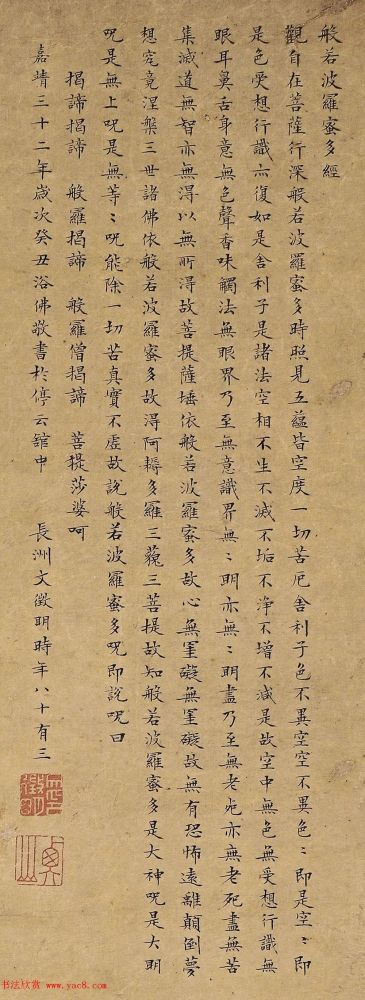 般若波羅蜜多經
觀自在菩薩行深般若波羅蜜多時照見五蘊皆空度一切苦厄舍利子色不異空空不異色〻即是空〻即
是色受想行識亦復如是舍利子是諸法空相不生不滅不垢不淨不增不減是故空中無色無受想行識無
眼耳鼻舌身意無色聲香味觸法無眼界乃至無意識界無〻明亦無〻明盡乃至無老死亦無老死盡無苦
集滅道無智亦無得以無所得故菩提薩埵依般若波羅蜜多故心無罣礙無罣礙故無有恐怖遠離顛倒夢
想究竟涅槃三世諸佛依般若波羅蜜多故得阿耨多羅三藐三菩提故知般若波羅蜜多是大神呪是大明
呪是無上呪是無等〻呪能除一切苦真實不虛故說般若波羅蜜多呪即說呪曰
揭諦揭諦 般羅揭諦 般羅僧揭諦 菩提莎婆呵
嘉靖三十二年歲次癸丑浴佛敬書於停云舘中 長洲文徵明時年八十有三
徵明
书法欣赏 www.yac8.com